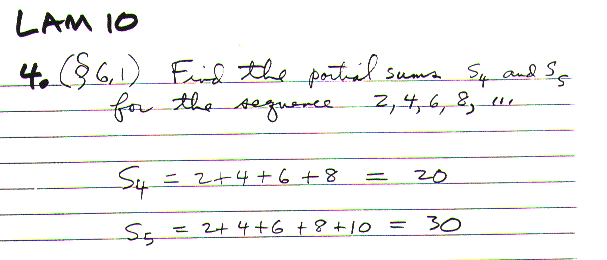 LAM 10
4. (§ 6.1) Find the partial sums S₄ and S₅
for the sequence 2, 4, 6, 8, ...
S₄ = 2+4+6+8 = 20
S₅ = 2+4+6+8+10 = 30